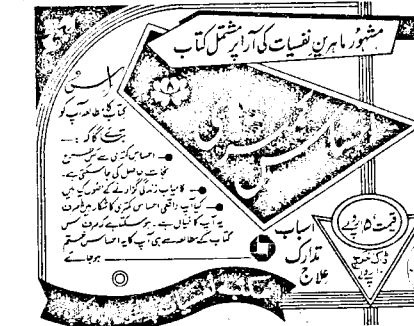 مشہور ماہرینِ نفسیات کی آرا پر مشتمل کتاب
احساسِ کمتری
اس
کتاب کا مطالعہ آپ کو
بتائے گا کہ :—
احساس کمتری سے کس طرح
نجات حاصل کی جاسکتی ہے۔
کامیاب زندگی گزارنے کے اصول کیا ہیں
کیا آپ واقعی احساس کمتری کا شکار ہیں یا صرف
یہ آپ کا خیال ہے۔ ہوسکتا ہے کہ صرف اس
کتاب کے مطالعہ سے ہی آپ کا یہ احساس ختم
ہوجائے
اسباب
تدارک
علاج
قیمت ۱۵ روپے
ڈاک خرچ
۱۰ روپے